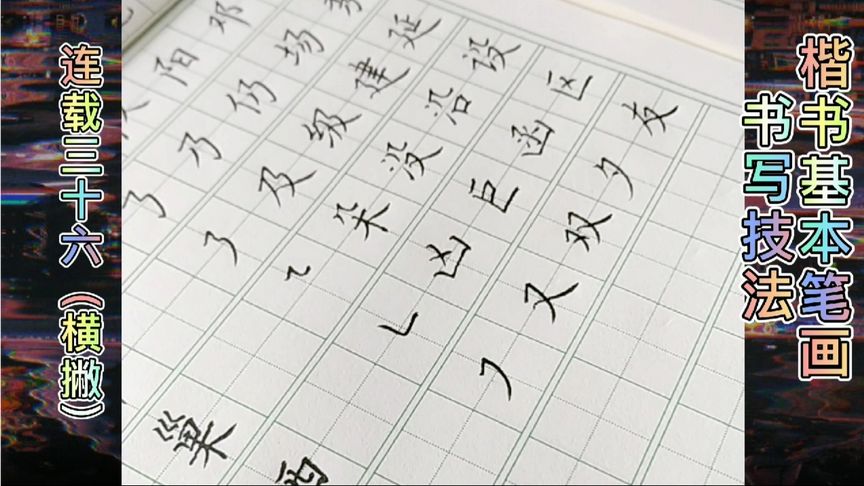 楷书基本笔画
书写技法
连载三十六（横撇）
邓
乃仍场
㇋及级建延
㇍朵没沿设
㇗凶巨函区
㇇又双夕友
巢